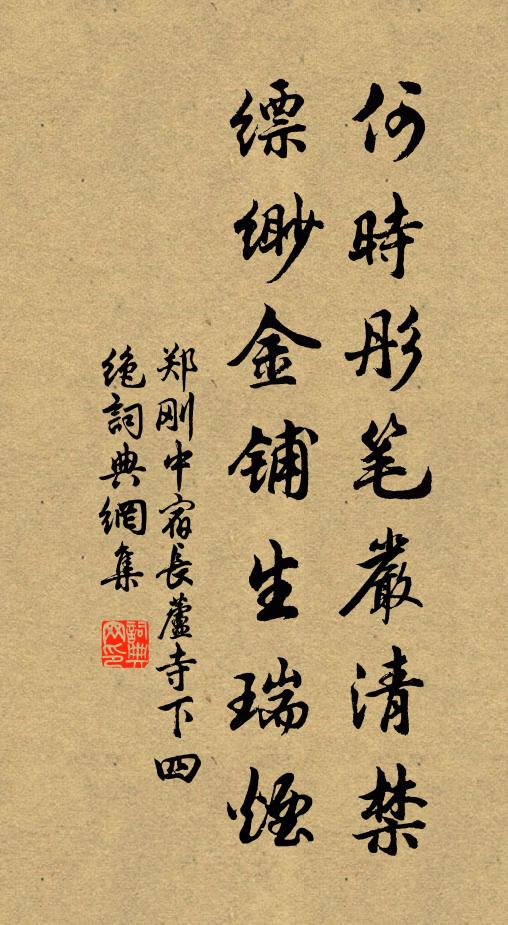 何時彤笔嚴清禁
缥緲金铺生瑞煙
郑刚中宿長蘆寺下四
绝詞典網集
詞典网印